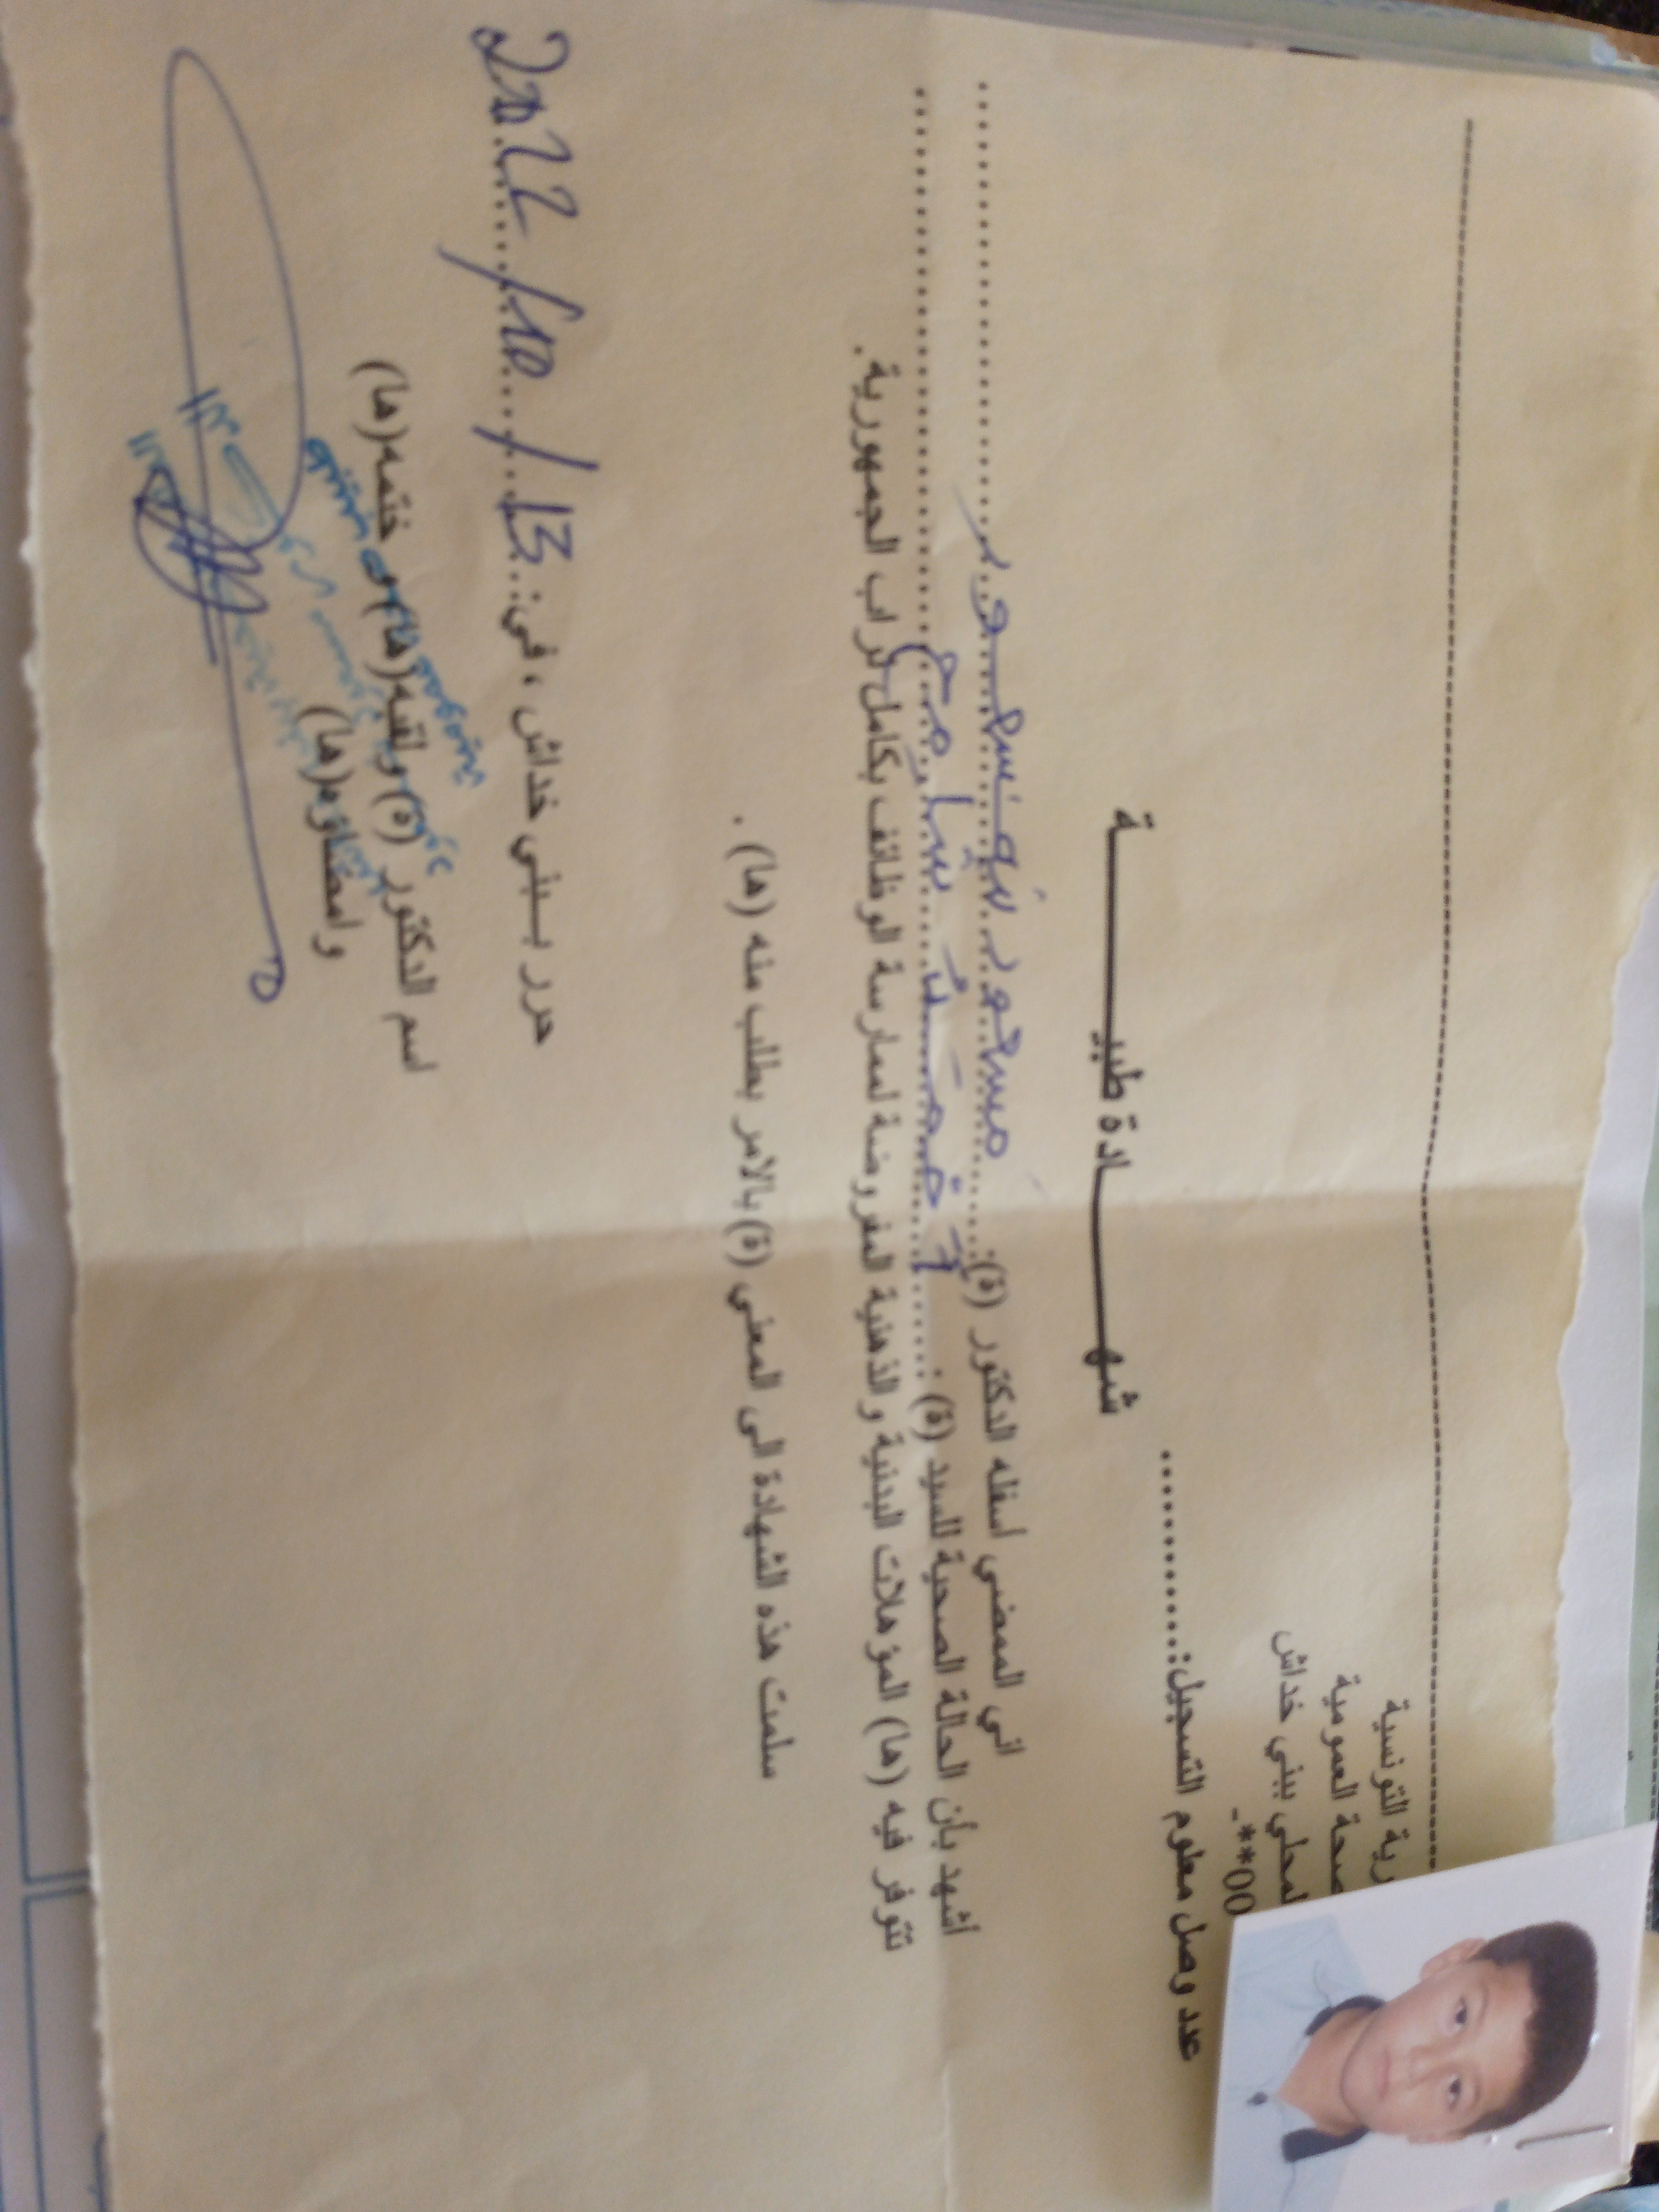 رية التونسية
صحة العمومية
لمحلي ببني خداش
-**00
عدد وصل معلوم التسجيل:............
شهـــــادة طبيـــــة
اني الممضي أسفله الدكتور (ة):
أشهد بأن الحالة الصحية للسيد (ة) :
تتوفر فيه (ها) المؤهلات البدنية و الذهنية المفروضة لممارسة الوظائف بكامل تراب الجمهورية.
سلمت هذه الشهادة الى المعني (ة) بالامر بطلب منه (ها) .
حرر ببني خداش ، في: 13 / 10 / 2022
اسم الدكتور (ة) ولقبه(ها) و ختمه(ها)
وامضاؤه(ها)